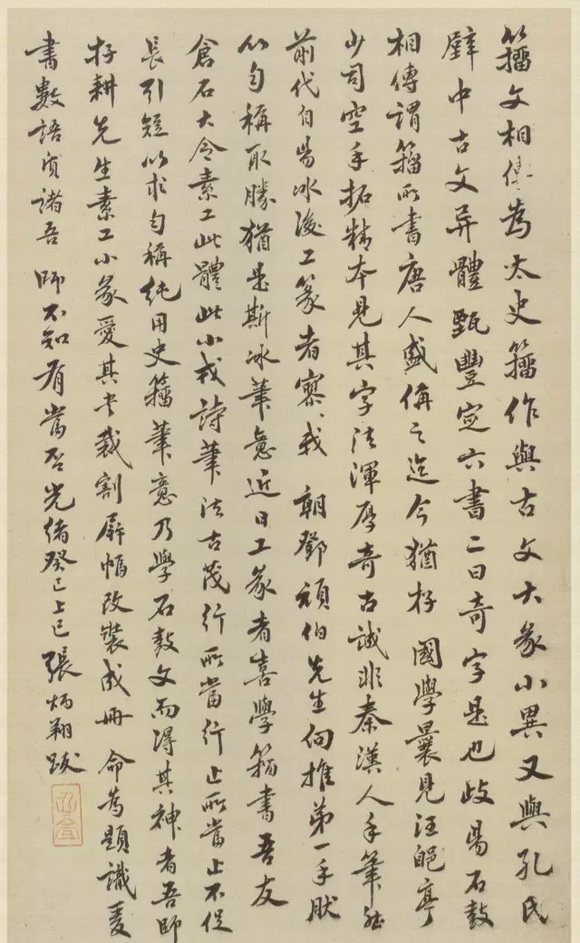 籀文相傳為太史籀作與古文大篆小異又與孔氏
壁中古文异體甄豐定六書二曰奇字是也岐陽石鼓
相傳謂籀所書唐人盛偁之迄今猶存國學曩見汪郋亭
少司空手拓精本見其字法渾厚奇古誠非秦漢人手筆能
前代自陽冰後工篆者寥寥我朝鄧頑伯先生向推第一手肰
以勻稱取勝猶是斯冰筆意近日工篆者喜學籀書吾友
倉石大令素工此體此小戎詩筆法古茂行所當行止所當止不促
長引短以求勻稱純用史籀筆意乃學石鼓文而得其神者吾師
存耕先生素工小篆愛其書裁割屏幅改裝成冊命為題識爰
書數語質諸吾師不知有當否光緒癸巳上巳張炳翔跋